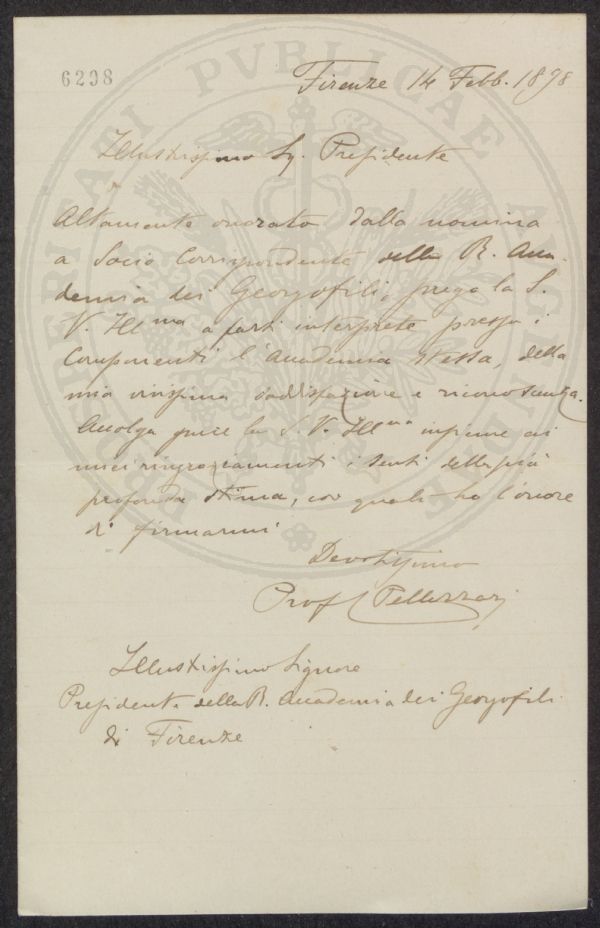 6298
Firenze 14 Febb. 1898
Illustrissimo Sg. Presidente
Altamente onorato dalla nomina
a Socio Corrispondente della R. Acca-
demia dei Georgofili, prego la S.
V. Ill.ma a farsi interprete presso i
Componenti l'Accademia stessa, della
mia vivissima soddisfazione e riconoscenza.
Accolga pure la S. V. Ill.ma insieme ai
miei ringraziamenti i sensi della più
profonda stima, con quali ho l'onore
di firmarmi
Devotissimo
Prof Pellizzari
Illustrissimo Signore
Presidente della R. Accademia dei Georgofili
di Firenze